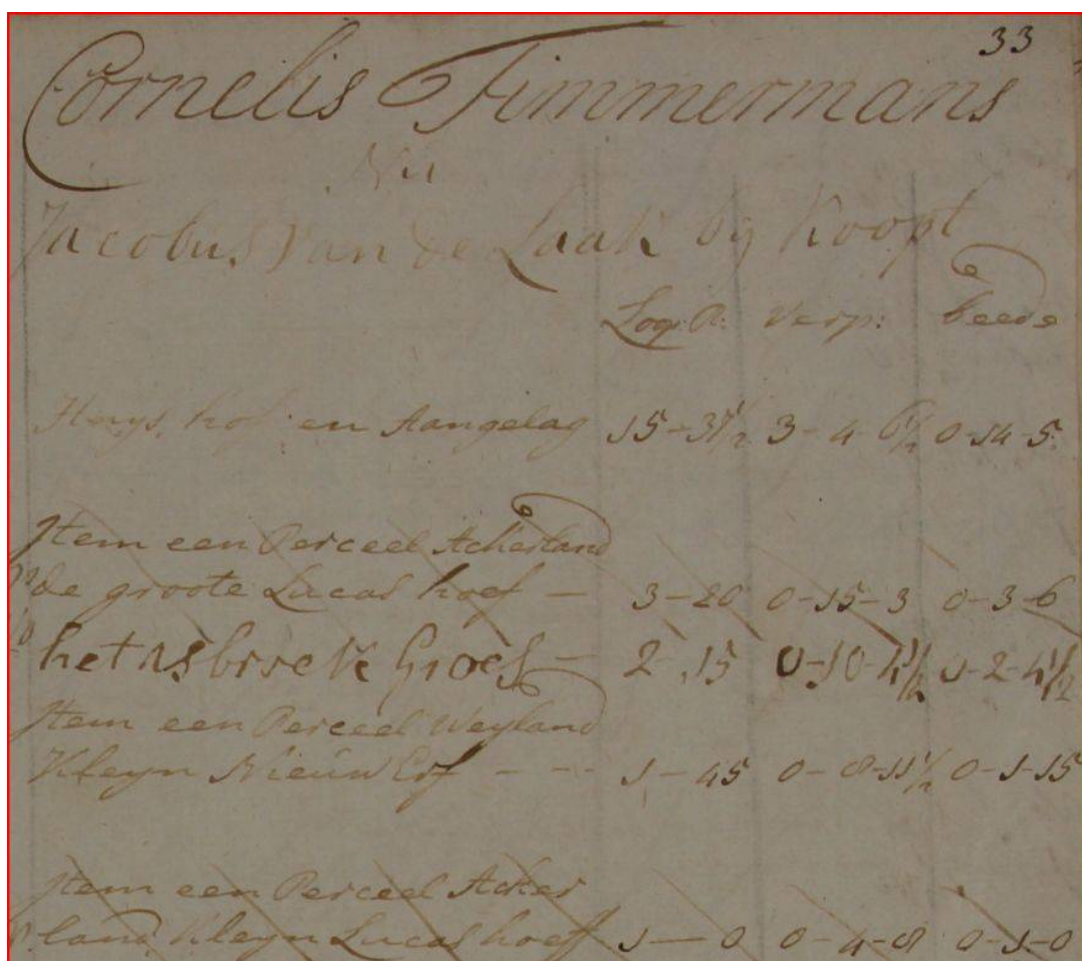 33
Cornelis Timmermans
Nu
Jacobus van de Laak bij Koopt
Lop: R: Verp: beede
Huys, hof en Aangelag 15-37½ 3-4-6½ 0-14-5
Item een Perceel Ackerland
de groote Lucas hoef - 3-20 0-15-3 0-3-6
het broek Groes - 2.15 0-10-4½ 0-2-4½
Item een Perceel Weyland
Kleyn Nieuw Erf - - - 1-45 0-8-11½ 0-1-15
Item een Perceel Acker
land Kleyn Lucas hoef 1-0 0-4-8 0-1-0